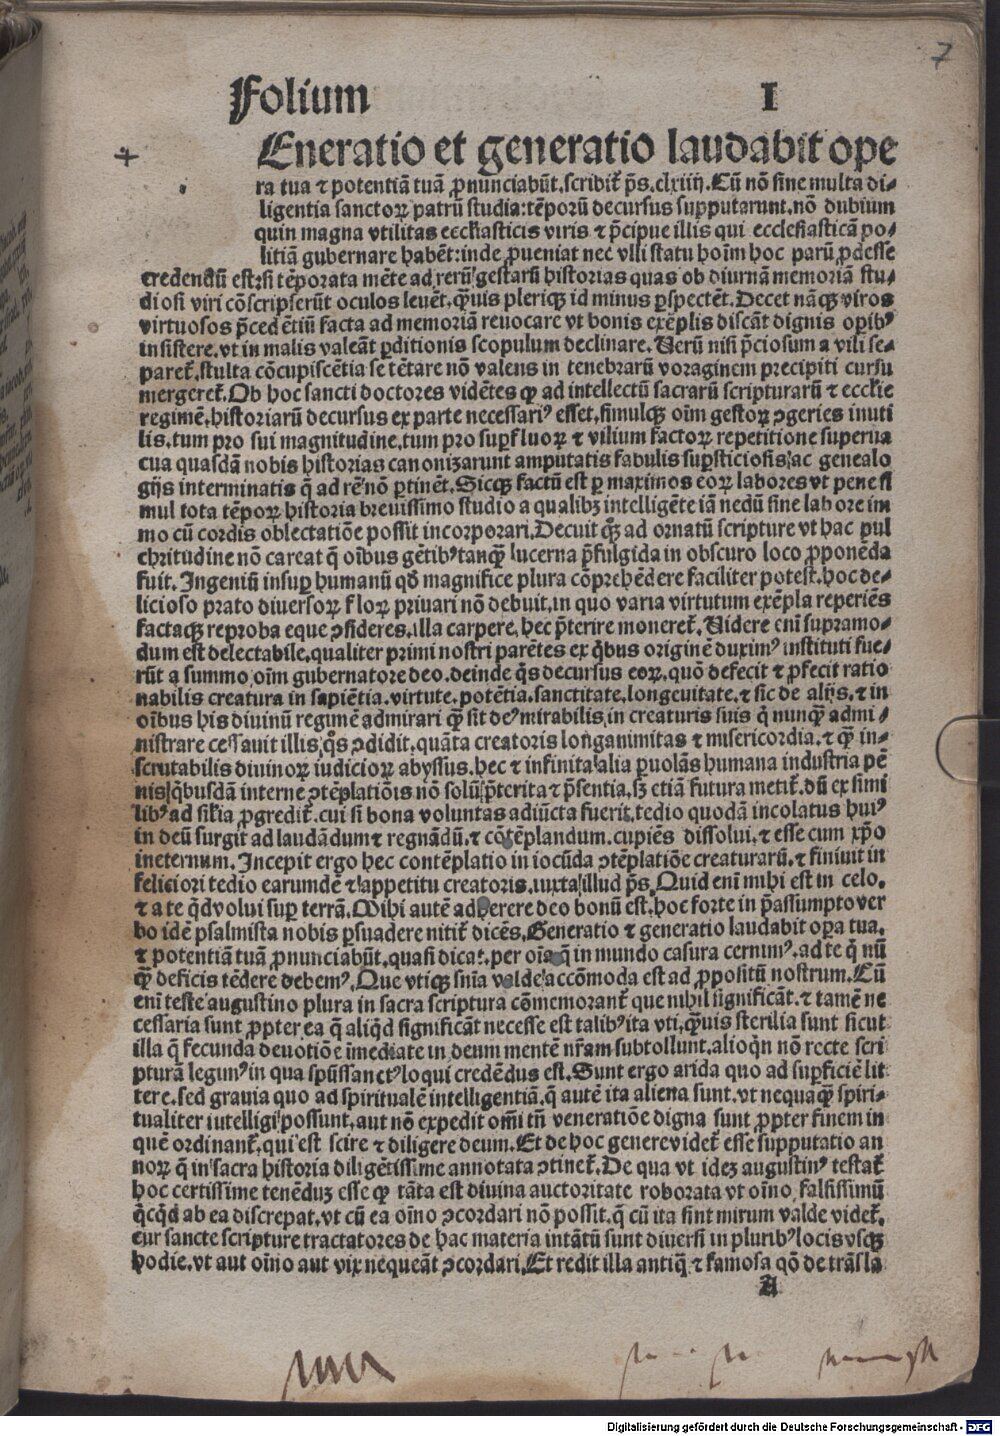 7
Folium I
Eneratio et generatio laudabit ope
ra tua ⁊ potentiã tuã ꝓnunciabũt.scribit᷑ p̃s.cxliiij.Cũ nõ sine multa di⸗
ligentia sanctoꝝ patrũ studia:tẽporũ decursus supputarunt.nõ dubium
quin magna vtilitas eccĺiasticis viris ⁊ p̃cipue illis qui ecclesiasticã po⸗
litiã gubernare habẽt:inde ꝓueniat nec vlli statu hoĩm hoc parũ ꝓdesse
credendũ est:si tẽporata mẽte ad rerũ gestarũ historias quas ob diurnã memoriã stu⸗
diosi viri cõscripserũt oculos leuẽt.q̃uis pleriqꝫ id minus ꝑspectẽt.Decet nãqꝫ viros
virtuosos p̃cedẽtiũ facta ad memoriã reuocare vt bonis exẽplis discãt dignis oꝑibꝰ
insistere.vt in malis valeãt ꝑditionis scopulum declinare.Verũ nisi p̃ciosum a vili se⸗
paret᷑.stulta cõcupiscẽtia se tẽtare nõ valens in tenebrarũ voraginem precipiti cursu
mergeret᷑.Ob hoc sancti doctores vidẽtes ꝙ ad intellectũ sacrarũ scripturarũ ⁊ eccĺie
regimẽ.historiarũ decursus ex parte necessariꝰ esset.simulqꝫ oĩm gestoꝝ ꝯgeries inuti
lis.tum pro sui magnitudine.tum pro suꝑfluoꝝ ⁊ vilium factoꝝ repetitione superua
cua quasdã nobis historias canonizarunt amputatis fabulis suꝑsticiosis ac genealo
gijs interminatis q̃ ad rẽ nõ ꝑtinẽt.Sicqꝫ factũ est ꝑ maximos eoꝝ labores vt pene si
mul tota tẽpoꝝ historia breuissimo studio a qualibꝫ intelligẽte iã nedũ sine labore im
mo cũ cordis oblectatiõe possit incorporari.Decuit q̃ꝫ ad ornatũ scripture vt hac pul
chritudine nõ careat q̃ oĩbus gẽtibꝰ tanq̃ꝫ lucerna p̃fulgida in obscuro loco ꝓponẽda
fuit.Ingeniũ insuꝑ humanũ qď magnifice plura cõprehẽdere faciliter potest.hoc de⸗
licioso prato diuersoꝝ floꝝ priuari nõ debuit.in quo varia virtutum exẽpla reperiẽs
factaqꝫ reproba eque ꝯsideres.illa carpere.hec p̃terire moneret᷑.Videre enĩ supramo⸗
dum est delectabile.qualiter primi nostri parẽtes ex q̃bus originẽ duximꝰ instituti fue⸗
rũt a summo oĩm gubernatore deo.deinde q̃s decursus eoꝝ.quõ defecit ⁊ ꝓfecit ratio
nabilis creatura in sapiẽtia.virtute.potẽtia.sanctitate.longeuitate.⁊ sic de alijs.⁊ in
oĩbus his diuinũ regimẽ admirari q̃ꝫ sit deꝰ mirabilis in creaturis suis q̃ nunq̃ꝫ admi⸗
nistrare cessauit illis q̊s ꝯdidit.quãta creatoris longanimitas ⁊ misericordia.⁊ q̃ꝫ in⸗
scrutabilis diuinoꝝ iudicioꝝ abyssus.hec ⁊ infinita alia ꝑuolãs humana industria pẽ
nis q̃busdã interne ꝯtẽplatiõis nõ solũ p̃terita ⁊ p̃sentia.sꝫ etiã futura metit᷑.dũ ex simi
libꝰ ad siĺia ꝓgredit᷑.cui si bona voluntas adiũcta fuerit.tedio quodã incolatus huiꝰ
in deũ surgit ad laudãdum ⁊ regnãdũ.⁊ cõtẽplandum.cupiẽs dissolui.⁊ esse cum xp̃o
ineternum.Incepit ergo hec contẽplatio in iocũda ꝯtẽplatiõe creaturarũ.⁊ finiuit in
feliciori tedio earundẽ ⁊ appetitu creatoris.iuxta illud p̃s.Quid enĩ mihi est in celo.
⁊ a te q̃d volui suꝑ terrã.Mihi autẽ adherere deo bonũ est.hoc forte in p̃assumpto ver
bo idẽ psalmista nobis ꝑsuadere nitit᷑ dicẽs.Generatio ⁊ generatio laudabit oꝑa tua.
⁊ potentiã tuã ꝓnunciabũt.quasi dicat.per oĩa q̃ in mundo casura cernimꝰ.ad te q̃ nũ
q̃ꝫ deficis tẽdere debemꝰ.Que vtiqꝫ sñia valde accõmoda est ad ꝓpositũ nostrum.Cũ
enĩ teste augustino plura in sacra scriptura cõmemorant᷑ que nihil significãt.⁊ tamẽ ne
cessaria sunt ꝓpter ea q̃ aliq̃d significãt necesse est talibꝰ ita vti.q̃uis sterilia sunt sicut
illa q̃ fecunda deuotiõe ĩmediate in deum mentẽ nr̃am subtollunt.alioq̃n nõ recte scri
pturã legimꝰ in qua sp̃ussanctꝰ loqui credẽdus est.Sunt ergo arida quo ad suꝑficiẽ lit
tere.sed grauia quo ad spiritualẽ intelligentiã.q̃ autẽ ita aliena sunt.vt nequaq̃ꝫ spiri⸗
tualiter intelligi possunt.aut nõ expedit om̃i tñ veneratiõe digna sunt ꝓpter finem in
quẽ ordinant᷑.qui est scire ⁊ diligere deum.Et de hoc genere videt᷑ esse supputatio an
noꝝ q̃ in sacra historia diligẽtissime annotata ꝯtinet᷑.De qua vt idez augustinꝰ testat᷑
hoc certissime tenẽduz esse ꝙ tãta est diuina auctoritate roborata vt oĩno falsissimũ
q̃cq̃d ab ea discrepat.vt cũ ea oĩno ꝯcordari nõ possit.q̃ cũ ita sint mirum valde videt᷑.
cur sancte scripture tractatores de hac materia intãtũ sunt diuersi in pluribꝰ locis vsqꝫ
hodie.vt aut oĩno aut vix nequeãt ꝯcordari.Et redit illa antiq̃ ⁊ famosa qõ de trãsla
A
Digitalisierung gefördert durch die Deutsche Forschungsgemeinschaft - DFG